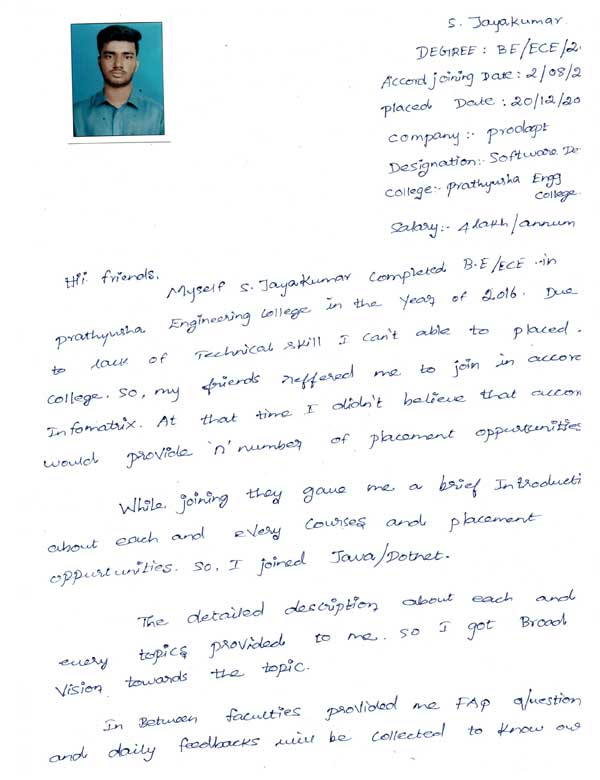 S. Jayakumar
DEGREE : BE/ECE/2
Accord joining Date : 2/08/2
placed Date : 20/12/20
company :- prodapt
Designation :- Software De
College :- prathyusha Engg
College.
Salary :- 4 lakh/annum
Hii friends.
Myself S. Jayakumar Completed B.E/ECE in
prathyusha Engineering College in the Year of 2016. Due
to lack of Technical skill I can't able to placed.
College. So, my friends reffered me to join in accor
Infomatrix. At that time I didn't believe that accor
would provide 'n' number of placement oppurtunities
While joining they gave me a brief Introducti
about each and every courses and placement
oppurtunities. So, I joined Java/Dotnet.
The detailed description about each and
every topics provided to me. so I got Broad
Vision towards the topic.
In Between faculties provided me FAQ question
and daily feedbacks will be collected to know our